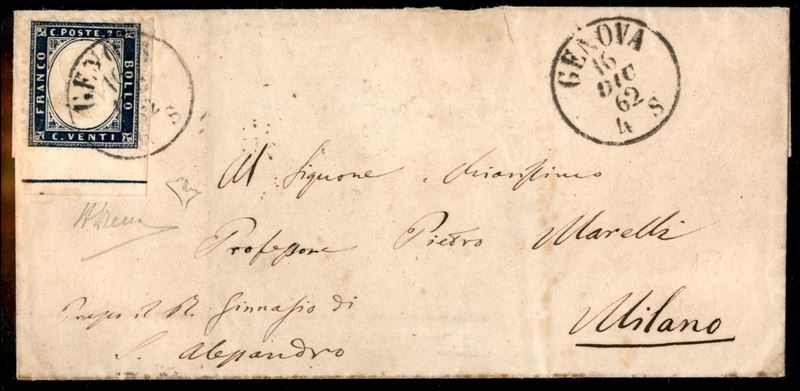 C. POSTE. 20
FRANCO
BOLLO
C. VENTI
GENOVA
16
DIC
62
4 S
Al Signore Chiarissimo
Professore Pietro Marelli
Presso il R. Ginnasio di
S. Alessandro
Milano